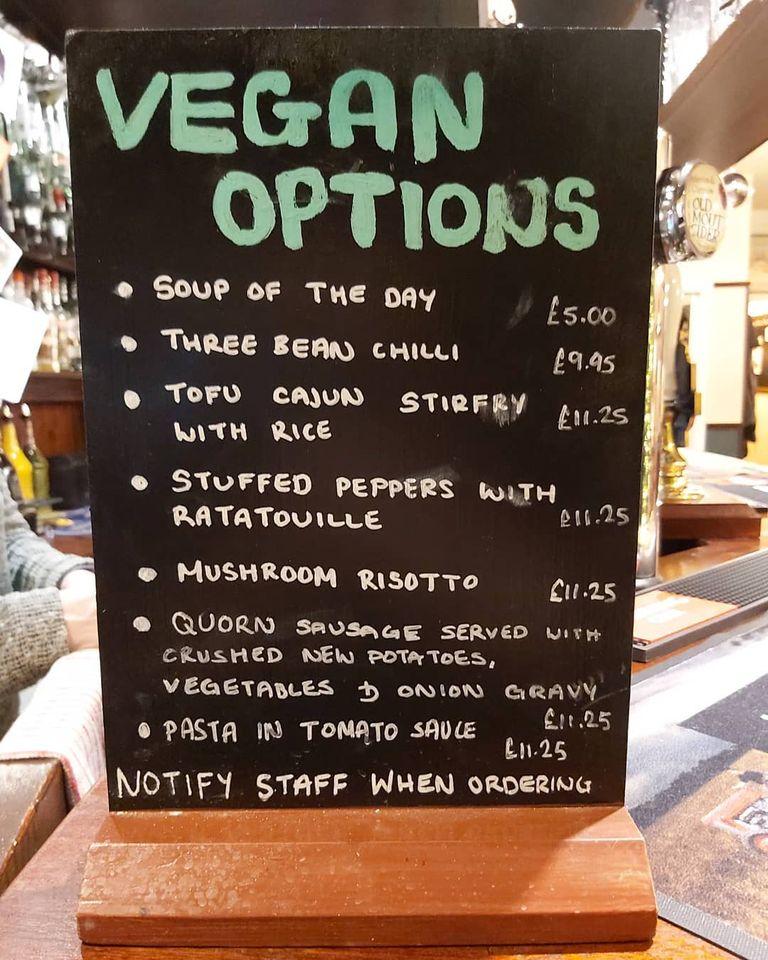 VEGAN
OPTIONS
• SOUP OF THE DAY £5.00
• THREE BEAN CHILLI £9.95
• TOFU CAJUN STIRFRY £11.25
WITH RICE
• STUFFED PEPPERS WITH
RATATOUILLE £11.25
• MUSHROOM RISOTTO £11.25
• QUORN SAUSAGE SERVED WITH
CRUSHED NEW POTATOES,
VEGETABLES & ONION GRAVY
£11.25
• PASTA IN TOMATO SAUCE
£11.25
NOTIFY STAFF WHEN ORDERING
OLD
MOUT
CIDER